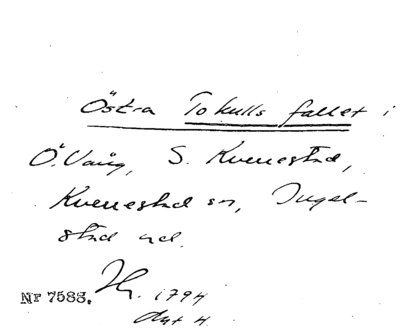 Östra Tokulls fallet i
Ö. Vång, S. Kverrestad,
Kverrestad sn, Ingel-
stad hd.
Nr 7583. 1794
Akt 4.